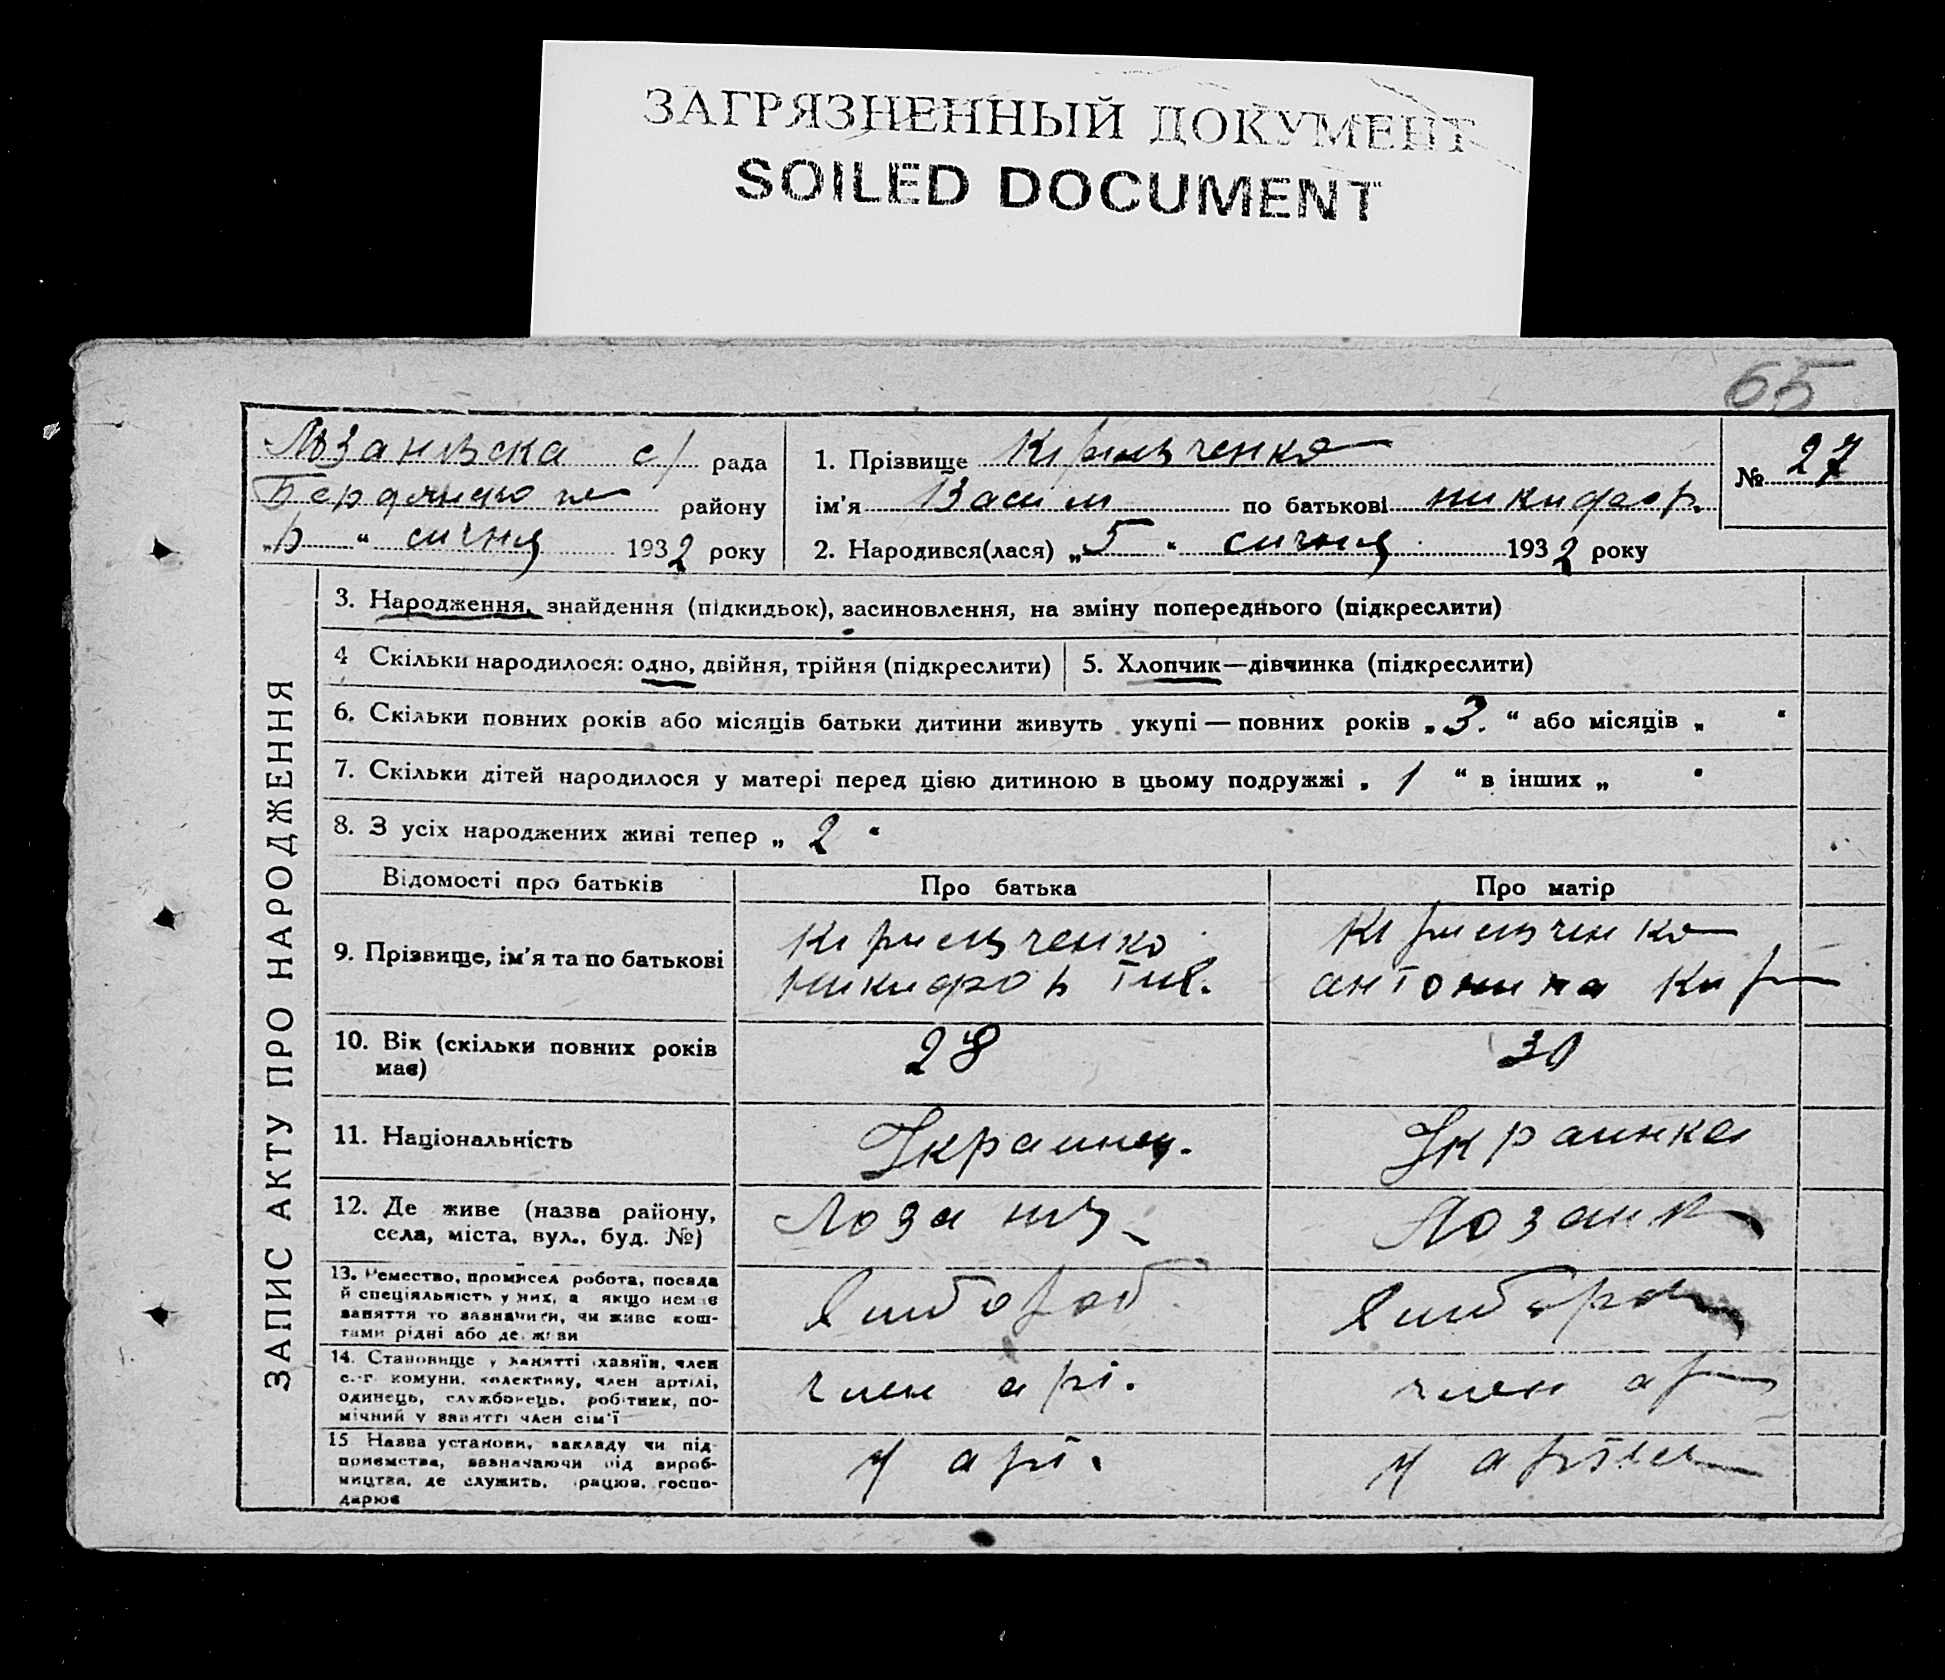 ЗАГРЯЗНЕННЫЙ ДОКУМЕНТ
SOILED DOCUMENT
65
Лозанівска с/ рада
Бердянсько району
1932 року
сичня
1. Прізвище Кирильченко
№ 27
ім'я Васил по батькові никифор.
2. Народився(лася) „5" сичня 1932 року
ЗАПИС АКТУ ПРО НАРОДЖЕННЯ
3. Народження, знайдення (підкидьок), засиновлення, на зміну попереднього (підкреслити)
4 Скільки народилося: одно, двійня, трійня (підкреслити)
5. Хлопчик—дівчинка (підкреслити)
6. Скільки повних років або місяців батьки дитини живуть укупі — повних років „3." або місяців „ "
7. Скільки дітей народилося у матері перед цією дитиною в цьому подружжі „1" в інших „ "
8. З усіх народжених живі тепер „2"
Відомості про батьків
Про батька
Про матір
9. Прізвище, ім'я та по батькові
Кирильченко
никифор
Кирильченко
антонина Кир
10. Вік (скільки повних років
має)
28
30
11. Національність
Украинец.
Украинка
12. Де живе (назва району,
села, міста, вул., буд. №)
Лозани
Лозан
13. Ремество, промисел робота, посада
й спеціяльність у них, а якщо немає
заняття то зазначити, чи живе кош-
тами рідні або де живи
хлибороб
хлибороб
14. Становище у занятті хазяїн, член
с.-г. комуни, колективу, член артілі,
одинець, службовець, робітник, по-
мічний у занятті член сім'ї
член арі.
член ар
15 Назва установи, закладу чи під-
приємства, зазначаючи від вироб-
ництва, де служить, працює, госпо-
дарює
У арі.
У артіли